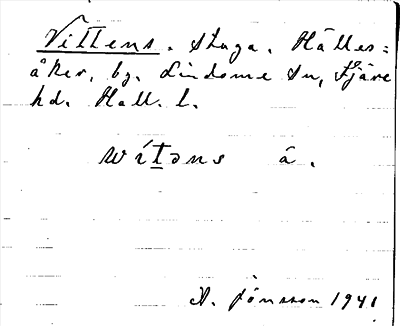 Vittens. stuga. Hälles=
åker, by. Lindome sn, Fjäre
hd. Hall. l.
wítəns â.
A. Jönsson 1941